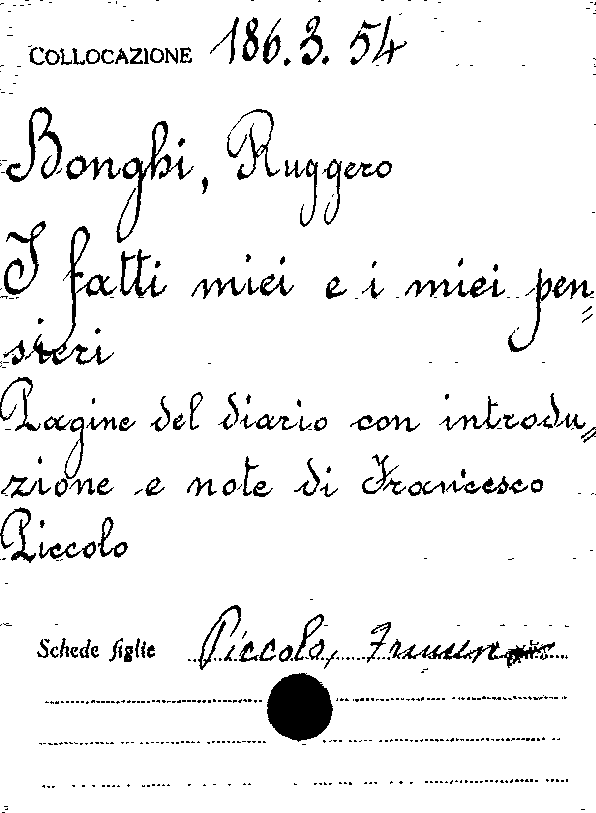 COLLOCAZIONE 186.3.54
Bonghi, Ruggero
I fatti miei e i miei pen=
sieri
Pagine del diario con introdu=
zione e note di Francesco
Piccolo
Schede figlie Piccolo,